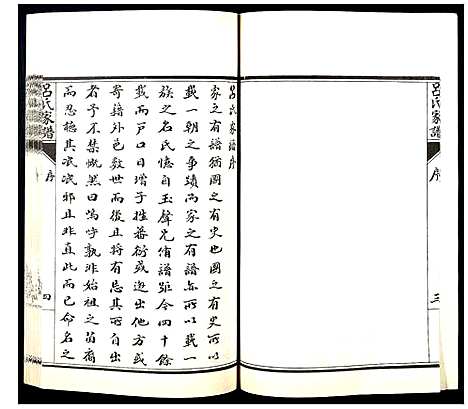 呂氏家譜
序
三
呂氏家譜序
家之有譜猶國之有史也國之有史所以
載一朝之事蹟而家之有譜亦所以載一
族之名氏憶自玉聲兄脩譜距今四十餘
載而戶口日增子姓蕃衍或遊出他方或
寄籍外邑数世而後且將有忘其所自出
者予不禁慨然曰嗚呼孰非始祖之苗裔
而忍聽其泯泯邪且非直此而已命名之
呂氏家譜
序
四